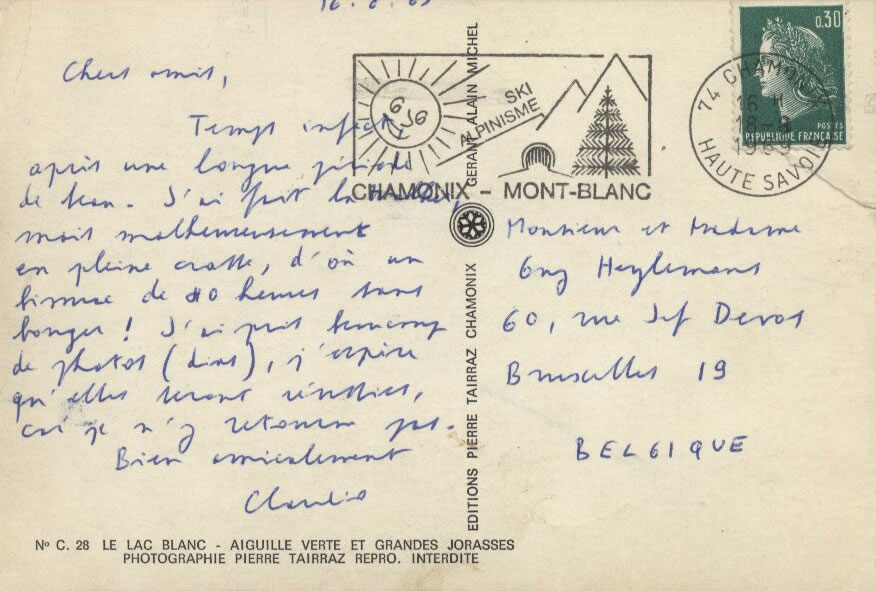 Chers amis,
Temps infect,
après une longue période
de beau. J'ai fait la
mais malheureusement
en pleine crasse, d'où un
bivouac de 10 heures sans
bouger ! J'ai pris beaucoup
de photos (dias), j'espère
qu'elles seront réussies,
car je n'y retourne pas.
Bien amicalement
Claudio
Nº C. 28 LE LAC BLANC - AIGUILLE VERTE ET GRANDES JORASSES
PHOTOGRAPHIE PIERRE TAIRRAZ REPRO. INTERDITE
GERANT ALAIN MICHEL
EDITIONS PIERRE TAIRRAZ CHAMONIX
SKI
ALPINISME
CHAMONIX - MONT-BLANC
74 CHAMONIX
16 H
18-8
1969
HAUTE SAVOIE
0,30
POSTES
REPUBLIQUE FRANÇAISE
Monsieur et Madame
Guy Heylemans
60, rue Jef Devos
Bruxelles 19
BELGIQUE